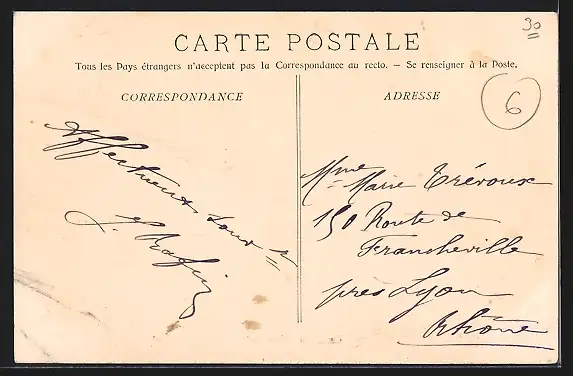 30
CARTE POSTALE
Tous les Pays étrangers n'acceptent pas la Correspondance au recto. — Se renseigner à la Poste.
CORRESPONDANCE
ADRESSE
6
Affectueux
J.
Mme Marie Trévoux
150 Route de
Francheville
près Lyon
Rhône